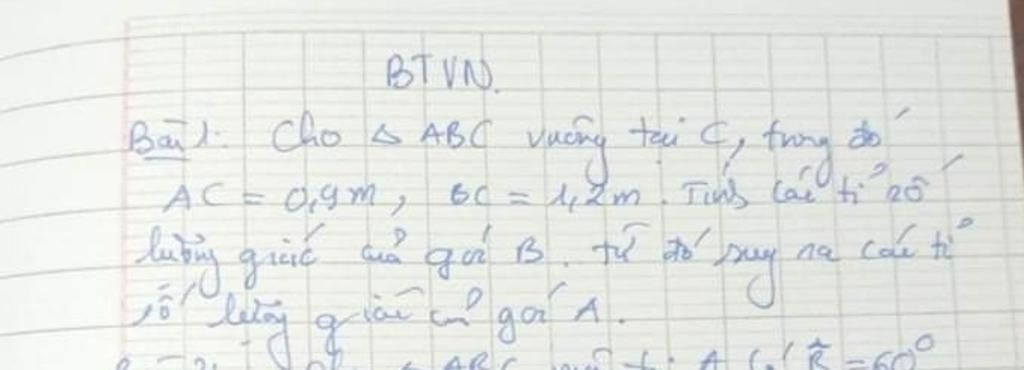 BTVN.
Bài 1: Cho Δ ABC vuông tại C, trong đó
AC = 0,9m, BC = 1,2m. Tính các tỉ số
lượng giác của góc B. từ đó suy ra các tỉ
số lượng giác của góc A.
ABC A B̂ = 60°